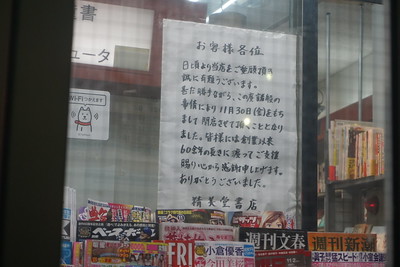 書
ュータ
Wi-Fi
お客様各位
日頃より当店をご愛顧頂き
誠に有難うございます。
甚だ勝手ながら、この度諸般の
事情により11月30日(金)をもち
まして閉店させて頂くこととなり
ました。皆様には創業以来
60余年の長きに渡ってご支援
賜り心から感謝申し上げます。
ありがとうございました。
精美堂書店
FRI
小倉優香
週刊文春
週刊新潮